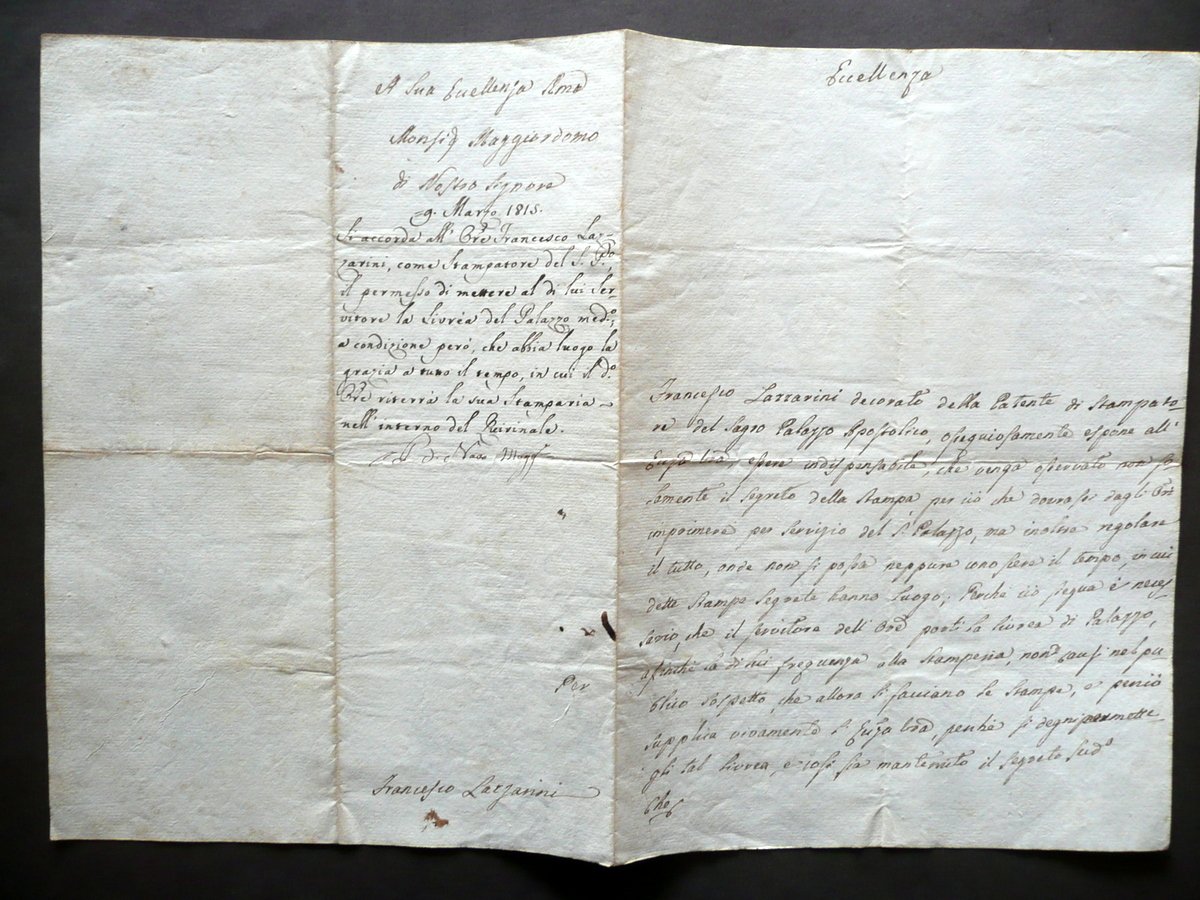 A Sua Eccellenza Rma
Monsig Maggiordomo
di Nostro Signore
9. Marzo 1815.
Si accorda all' Ore Francesco Laz-
zarini, come Stampatore del S. P.o,
il permesso di mettere al di lui Ser-
vitore la Livrea del Palazzo med.o,
a condizione però, che abbia luogo la
grazia a tutto il tempo, in cui il d.o
Ore riterrà la sua Stamparia
nell'interno del Quirinale.
Per
Francesco Lazzarini
Eccellenza
Francesco Lazzarini decorato della Patente di Stampato-
re del Sagro Palazzo Apostolico, ossequiosamente espone all'
Ecc̃za Vrã, essere indispensabile, che venga osservato non so-
lamente il segreto della stampa per ciò che dovrassi dagli Ore
imprimere per servizio del S. Palazzo, ma inoltre regolare
il tutto, onde non si possa neppure conoscere il tempo, in cui
dette Stampe Segrete hanno luogo; Perchè ciò segua è neces
sario, che il servitore dell' Ore porti la livrea di Palazzo,
affinchè la di lui frequenza alla Stamperia, non causi nel pu-
blico sospetto, che allora si facciano le stampe, e perciò
supplica vivamente l'Ecc̃za Vrã, perchè si degni permette
gli tal livrea, e così sia mantenuto il segreto sud.o
Che